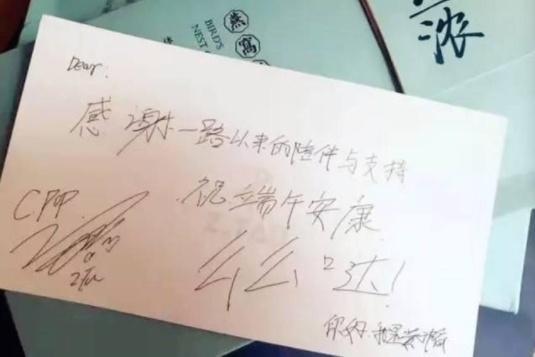 燕窝
BIRD'S
NEST
浓
Dear.
感谢一路以来的陪伴与支持
祝端午安康
CPP
么么哒!
你的